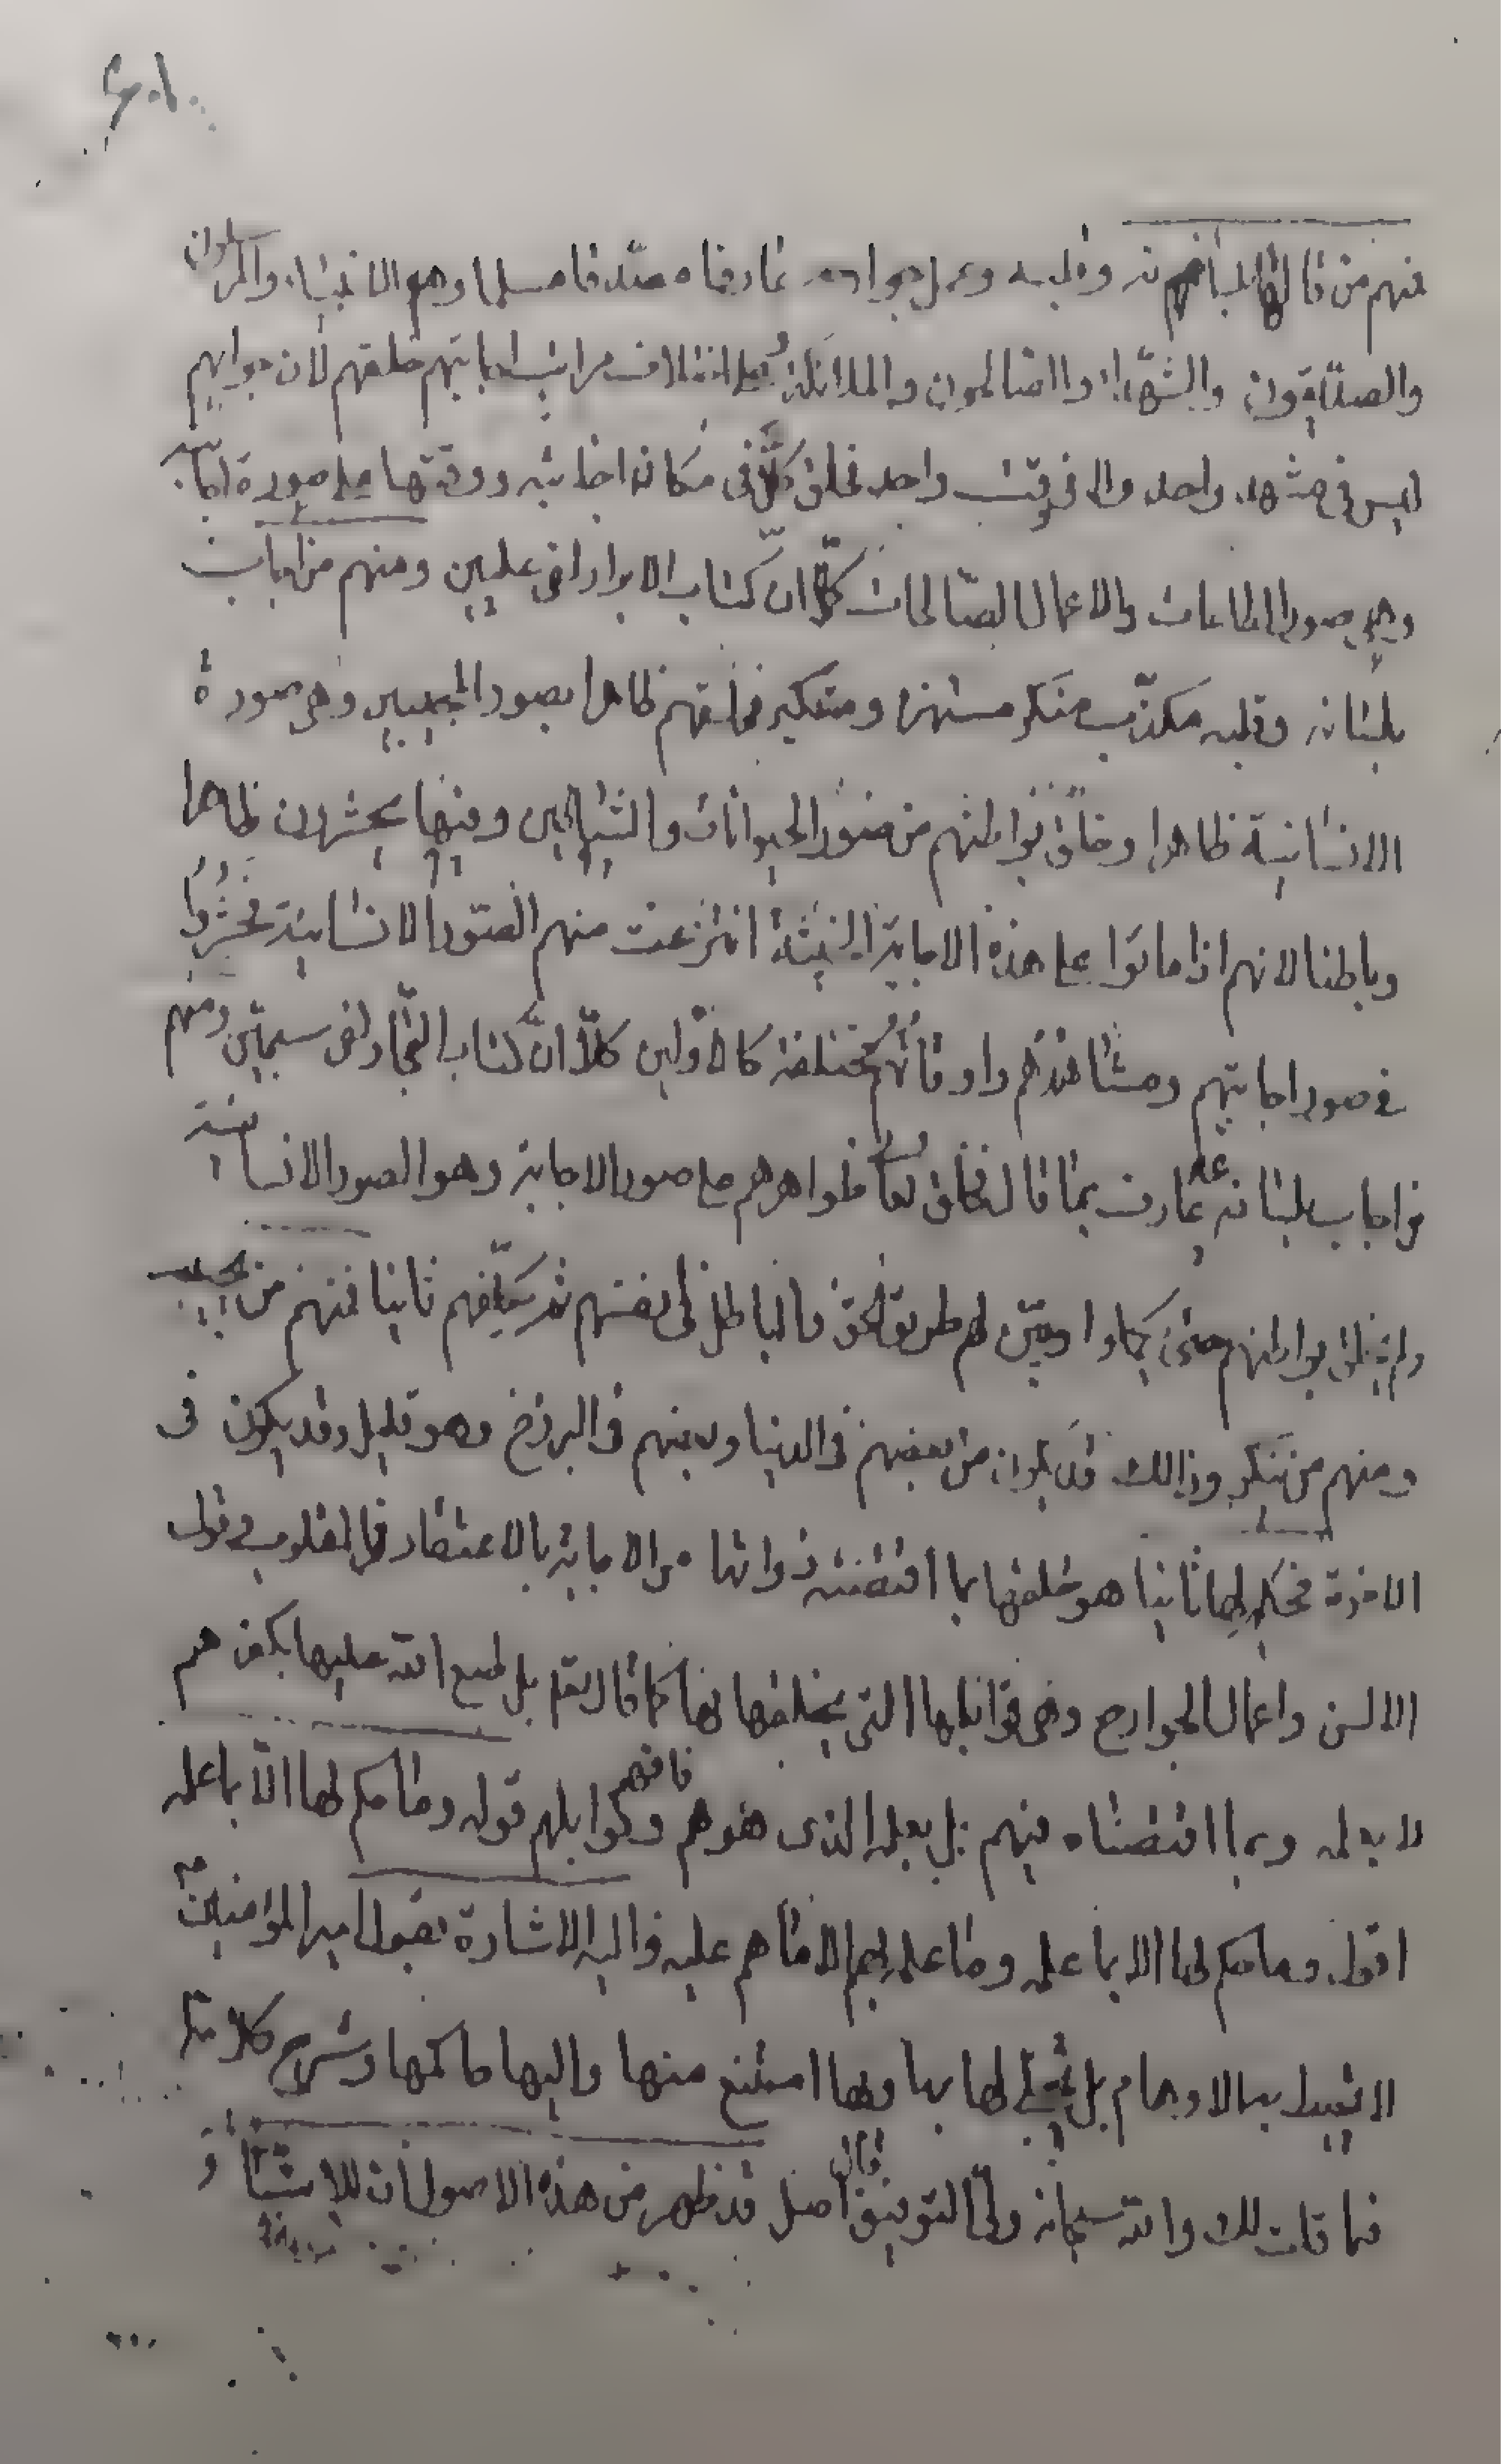 فمنهم من قالها بلسانه وقلبه وعمل جوارحه عارفا مصدقا مسلما وهم الانبياء والمرسلون
والصديقون والشهداء والصالحون والملائكة على اختلاف مراتب اجاباتهم خلقهم لان جوابهم
ليس في مشهد واحد ولا في وقت واحد فخلق كلا في مكان اجابته ووقتها على صورة اجابته
وهي صور الطاعات والاعمال الصالحات كلا ان كتاب الابرار لفي عليين ومنهم من اجاب
بلسانه وقلبه مكذب منكر مستهزء ومتكبر فخلقهم ظاهرا بصور المجيبين وهي صورة
الانسانية ظاهرا وخلق بواطنهم من صور الحيوانات والشياطين وفيها يحشرون ظاهرا
وباطنا لانهم اذا ماتوا على هذه الاجابة الخبيثة انتزعت منهم الصور الانسانية فحشروا
في صور اجابتهم ومشاهدهم واوقاتهم مختلفة كالاولين كلا ان كتاب الفجار لفي سجين ومنهم
من اجاب بلسانه غير عارف بما قال فخلق ظواهرهم على صور الاجابة وهو الصور الانسانية
ولم يخلق بواطنهم حتى يبين لهم طريق الحق والباطل في انفسهم ثم يكلفهم ثانيا فمنهم من يجيب
ومنهم من ينكر وذلك قد يكون من بعضهم في الدنيا وبعضهم في البرزخ وهو قليل وقد يكون في
الاخرة فحكم لها ثانيا هو خلقها بما اقتضته ذواتها من الاجابة بالاعتقاد في القلوب في قول
الالسن واعمال الجوارح وهي قوابلها التي يخلقها بها كما قال تعالى بل طبع الله عليها بكفرهم
لا بعلمه وبما اقتضاه فيهم بل بعلمه الذي هو هم وقوابلهم فافهم قوله وما حكم لها الا بما علمه
اقول وما حكم لها الا بما علمه وما علم بهم الا ما هم عليه واليه الاشارة بقول امير المؤمنين
لا تحيط به الاوهام بل تجلى لها بها وبها امتنع منها واليها حاكمها وشرح كلامه
فيما قلت لك والله سبحانه ولي التوفيق قال اصل قد ظهر من هذه الاصول ان للاشياء